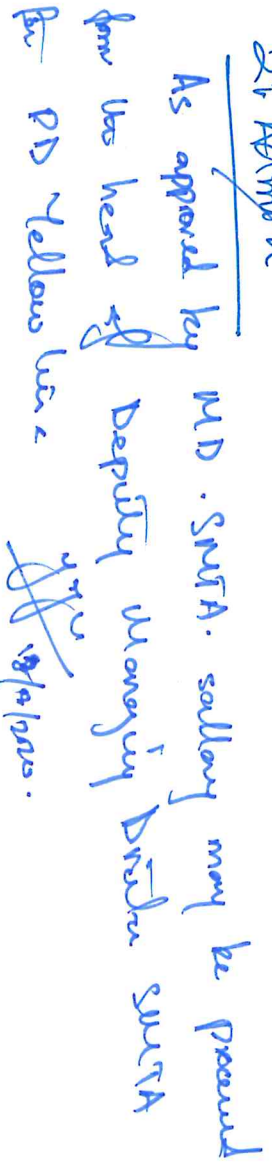 As approved by MD. SMTA. sallary may be processed
from the head of Deputy Managing Director SMTA
for PD Yellow line